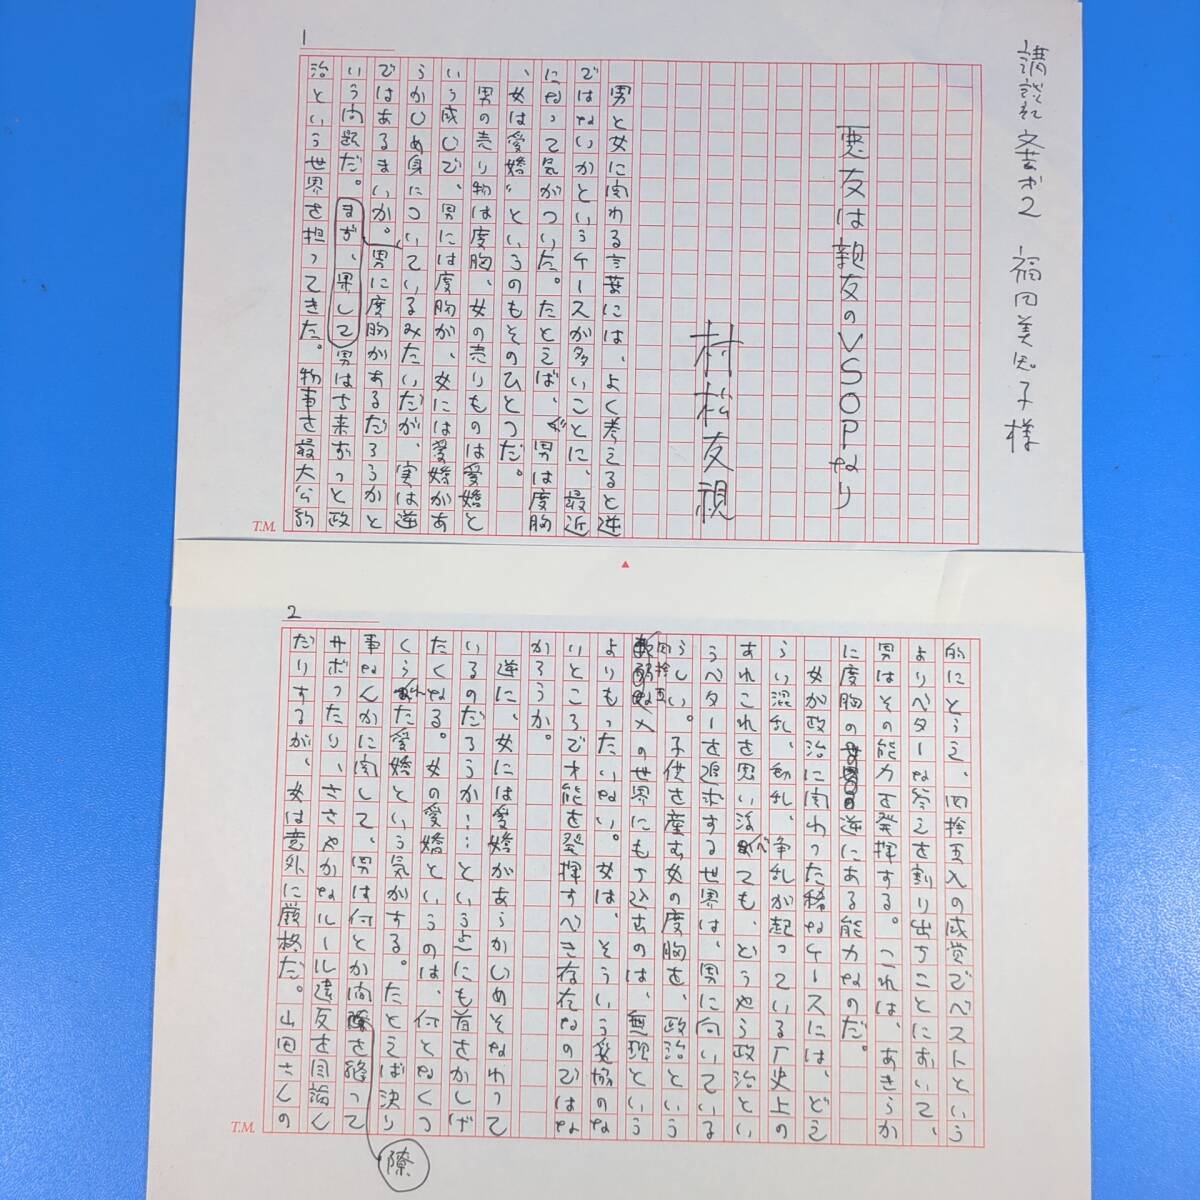 講談社文芸才2 福田美知子様
1
悪友は親友のVSOPなり
村松友視
男と女に関わる言葉には、よく考えると逆
ではないかというケースが多いことに、最近
になって気がついた。たとえば、“男は度胸
、女は愛嬌”というのもそのひとつだ。
男の売り物は度胸、女の売りものは愛嬌と
いう感じで、男には度胸が、女には愛嬌があ
らかじめ身についているみたいだが、実は逆
ではあるまいか。男に度胸があるだろうかと
いう問題だ。まず、果して男は古来ずっと政
治という世界を担ってきた。物事を最大公約
T.M.
2
的にとらえ、四捨五入の感覚でベストという
よりベターな答えを割り出すことにおいて、
男はその能力を発揮する。これは、あきらか
に度胸の逆にある能力なのだ。
女が政治に関わった稀なケースには、どえ
らい混乱、動乱、争乱が起っている。歴史上の
あれこれを思い浮べても、どうやら政治とい
うベターを追求する世界は、男に向いている
らしい。子供を産む女の度胸を、政治という
四捨五入の世界にもち込むのは、無理という
よりもったいない。女は、そういう妥協のな
いところで才能を発揮すべき存在なのではな
かろうか。
逆に、女には愛嬌があらかじめそなわって
いるのだろうか……という点にも首をかしげ
たくなる。女の愛嬌というのは、何となくつ
くられた愛嬌という気がする。たとえば決り
事なんかに関して、男は何とか間隙を縫って
サボったり、ささやかなルール違反を目論ん
だりするが、女は意外に厳格だ。山田さんの
隙
T.M.